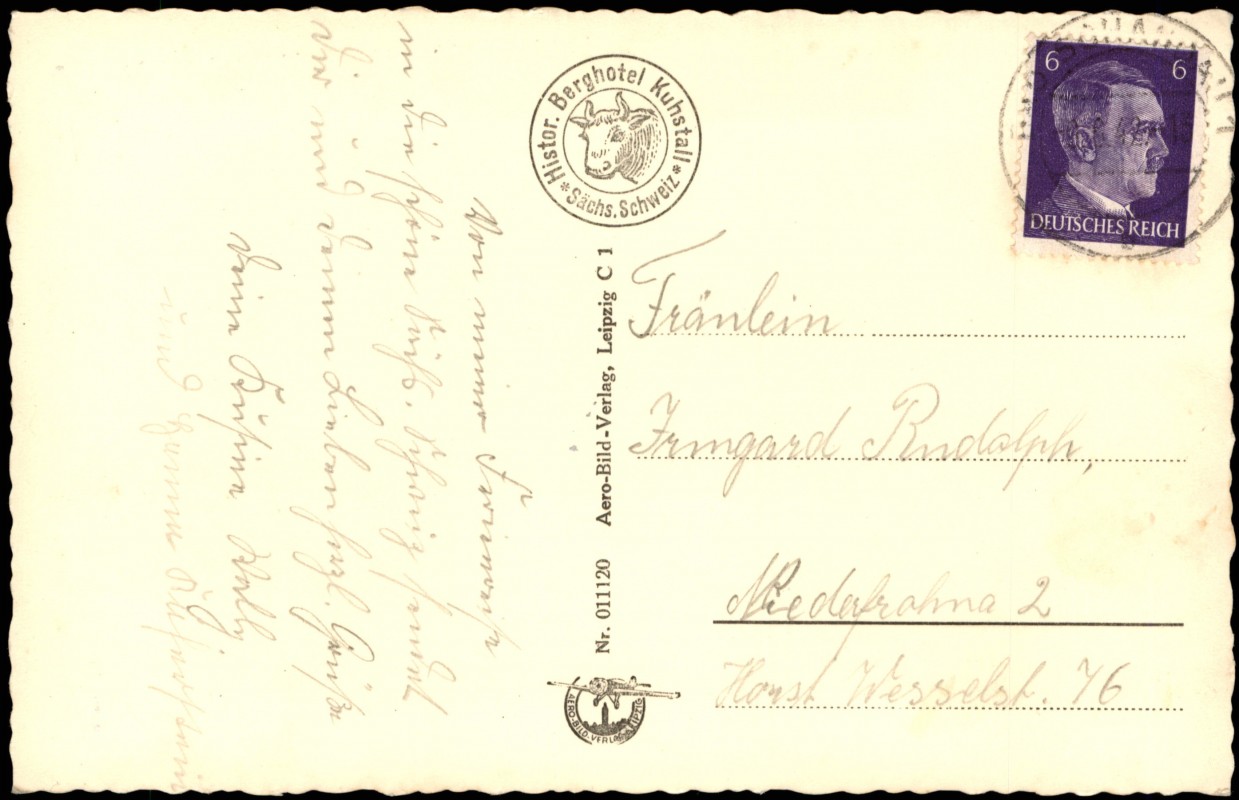 Von unserer Ferienreise
in die schöne Sächs. Schweiz sendet
Dir und Deinen Lieben herzl. Grüße
Deine Kusine
und
Histor. Berghotel Kuhstall
* Sächs. Schweiz *
Nr. 011120 Aero-Bild-Verlag, Leipzig C 1
AERO-BILD-VERLAG LEIPZIG
6 6
DEUTSCHES REICH
Fräulein
Irmgard Rudolph,
Niederfrohna 2
Horst Wesselst. 76